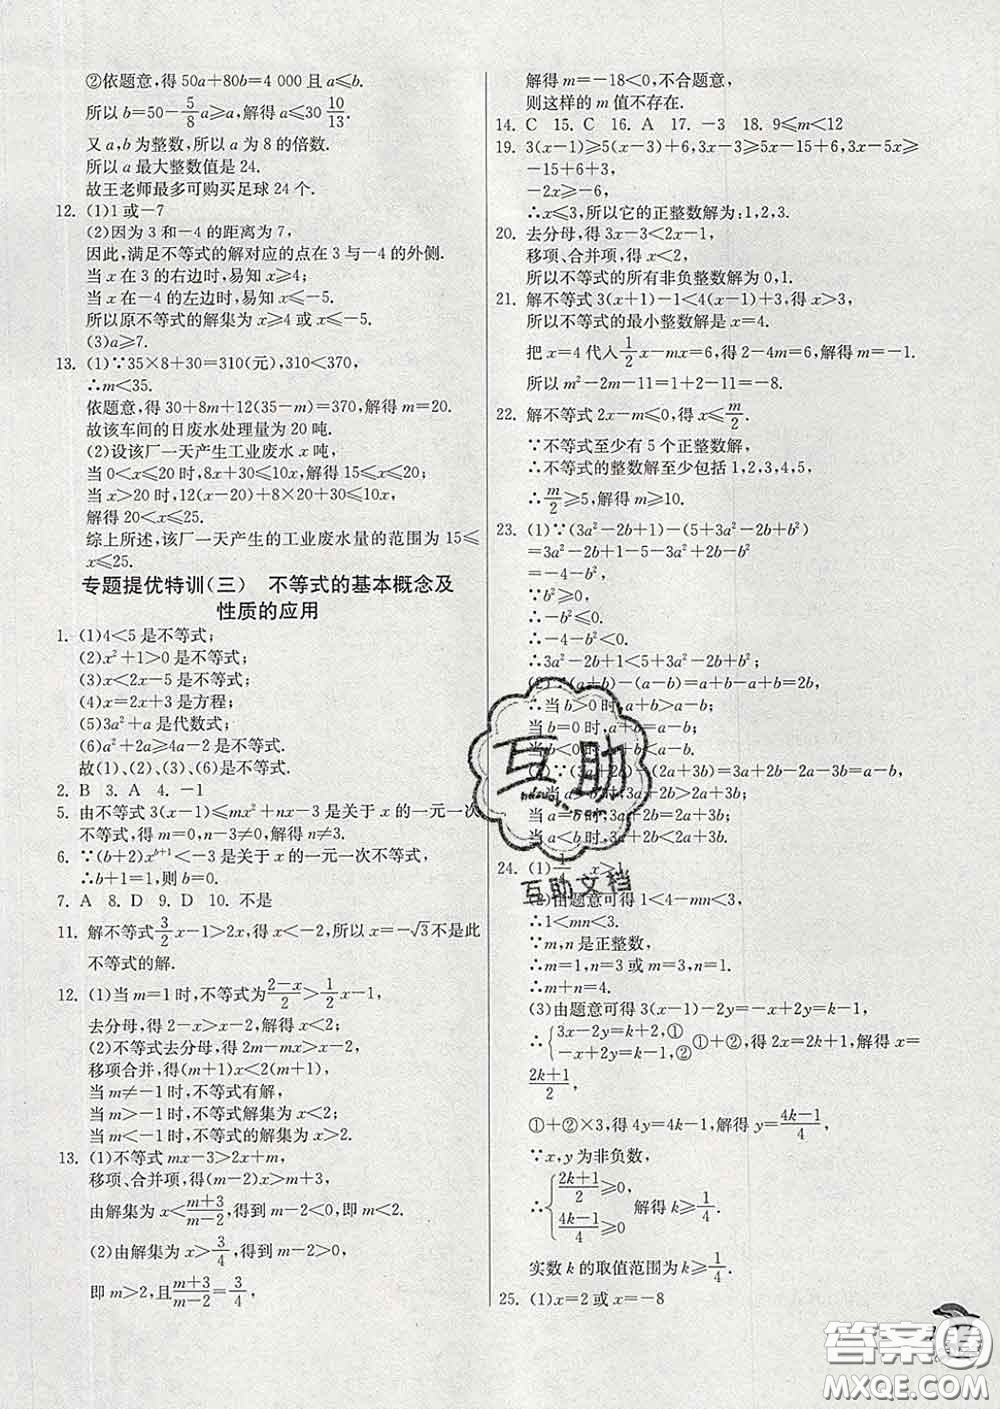 ②依题意,得 50a+80b=4 000 且 a⩽b.
所以 b=50-5/8a⩾a,解得 a⩽30 10/13.
又 a,b 为整数,所以 a 为 8 的倍数.
所以 a 最大整数值是 24.
故王老师最多可购买足球 24 个.
12. (1)1 或-7
(2)因为 3 和-4 的距离为 7,
因此,满足不等式的解对应的点在 3 与-4 的外侧.
当 x 在 3 的右边时,易知 x⩾4;
当 x 在-4 的左边时,易知 x⩽-5.
所以原不等式的解集为 x⩾4 或 x⩽-5.
(3)a⩾7.
13. (1)∵35×8+30=310(元),310<370,
∴m<35.
依题意,得 30+8m+12(35-m)=370,解得 m=20.
故该车间的日废水处理量为 20 吨.
(2)设该厂一天产生工业废水 x 吨.
当 0<x⩽20 时,8x+30⩽10x,解得 15⩽x⩽20;
当 x>20 时,12(x-20)+8×20+30⩽10x,
解得 20<x⩽25.
综上所述,该厂一天产生的工业废水量的范围为 15⩽
x⩽25.
专题提优特训(三) 不等式的基本概念及
性质的应用
1. (1)4<5 是不等式;
(2)x²+1>0 是不等式;
(3)x<2x-5 是不等式;
(4)x=2x+3 是方程;
(5)3a²+a 是代数式;
(6)a²+2a⩾4a-2 是不等式.
故(1)、(2)、(3)、(6)是不等式.
2. B 3. A 4. -1
5. 由不等式 3(x-1)⩽mx²+nx-3 是关于 x 的一元一次
不等式,得 m=0,n-3≠0,解得 n≠3.
6. ∵(b+2)x^(b+1)<-3 是关于 x 的一元一次不等式,
∴b+1=1,则 b=0.
7. A 8. D 9. D 10. 不是
11. 解不等式 3/2x-1>2x,得 x<-2,所以 x=-√3不是此
不等式的解.
12. (1)当 m=1 时,不等式为(2-x)/2>1/2x-1,
去分母,得 2-x>x-2,解得 x<2;
(2)不等式去分母,得 2m-mx>x-2,
移项合并,得(m+1)x<2(m+1),
当 m≠-1 时,不等式有解,
当 m>-1 时,不等式解集为 x<2;
当 m<-1 时,不等式的解集为 x>2.
13. (1)不等式 mx-3>2x+m,
移项、合并项,得(m-2)x>m+3,
由解集为 x<(m+3)/(m-2),得到 m-2<0,即 m<2.
(2)由解集为 x>3/4,得到 m-2>0,
即 m>2,且(m+3)/(m-2)=3/4,
解得 m=-18<0,不合题意,
则这样的 m 值不存在.
14. C 15. C 16. A 17. -3 18. 9⩽m<12
19. 3(x-1)⩾5(x-3)+6,3x-3⩾5x-15+6,3x-5x⩾
-15+6+3,
-2x⩾-6,
∴x⩽3,所以它的正整数解为:1,2,3.
20. 去分母,得 3x-3<2x-1,
移项、合并项,得 x<2,
所以不等式的所有非负整数解为 0,1.
21. 解不等式 3(x+1)-1<4(x-1)+3,得 x>3,
所以不等式的最小整数解是 x=4.
把 x=4 代入 1/2x-mx=6,得 2-4m=6,解得 m=-1.
所以 m²-2m-11=1+2-11=-8.
22. 解不等式 2x-m⩽0,得 x⩽m/2.
∵不等式至少有 5 个正整数解,
∴不等式的整数解至少包括 1,2,3,4,5,
∴m/2⩾5,解得 m⩾10.
23. (1)∵(3a²-2b+1)-(5+3a²-2b+b²)
=3a²-2b+1-5-3a²+2b-b²
=-4-b²=
∵b²⩾0,
∴-b²⩽0.
∴-4-b²<0.
∴3a²-2b+1<5+3a²-2b+b².
(2)∵(a+b)-(a-b)=a+b-a+b=2b,
∴当 b>0 时,a+b>a-b;
当 b=0 时,a+b=a-b;
当 b<0 时,a+b<a-b.
∵(3a+2b)-(2a+3b)=3a+2b-2a-3b=a-b,
a>b时,3a+2b>2a+3b;
当 a=b 时,3a+2b=2a+3b;
当 a<b 时,3a+2b<2a+3b.
24. (1)1/4 x>1
(2)由题意可得 1<4-mn<3,
∴1<mn<3.
∵m,n 是正整数,
∴m=1,n=3 或 m=3,n=1.
∴m+n=4.
(3)由题意可得 3(x-1)-2y=-x+2y=k-1,
∴{3x-2y=k+2,① -x+2y=k-1,② ①+②,得 2x=2k+1,解得 x=
(2k+1)/2,
①+②×3,得 4y=4k-1,解得 y=(4k-1)/4,
∵x,y 为非负数,
∴{(2k+1)/2⩾0, (4k-1)/4⩾0 解得 k⩾1/4.
实数 k 的取值范围为 k⩾1/4.
25. (1)x=2 或 x=-8
互助
互助文档
答案圈
MXQE.COM